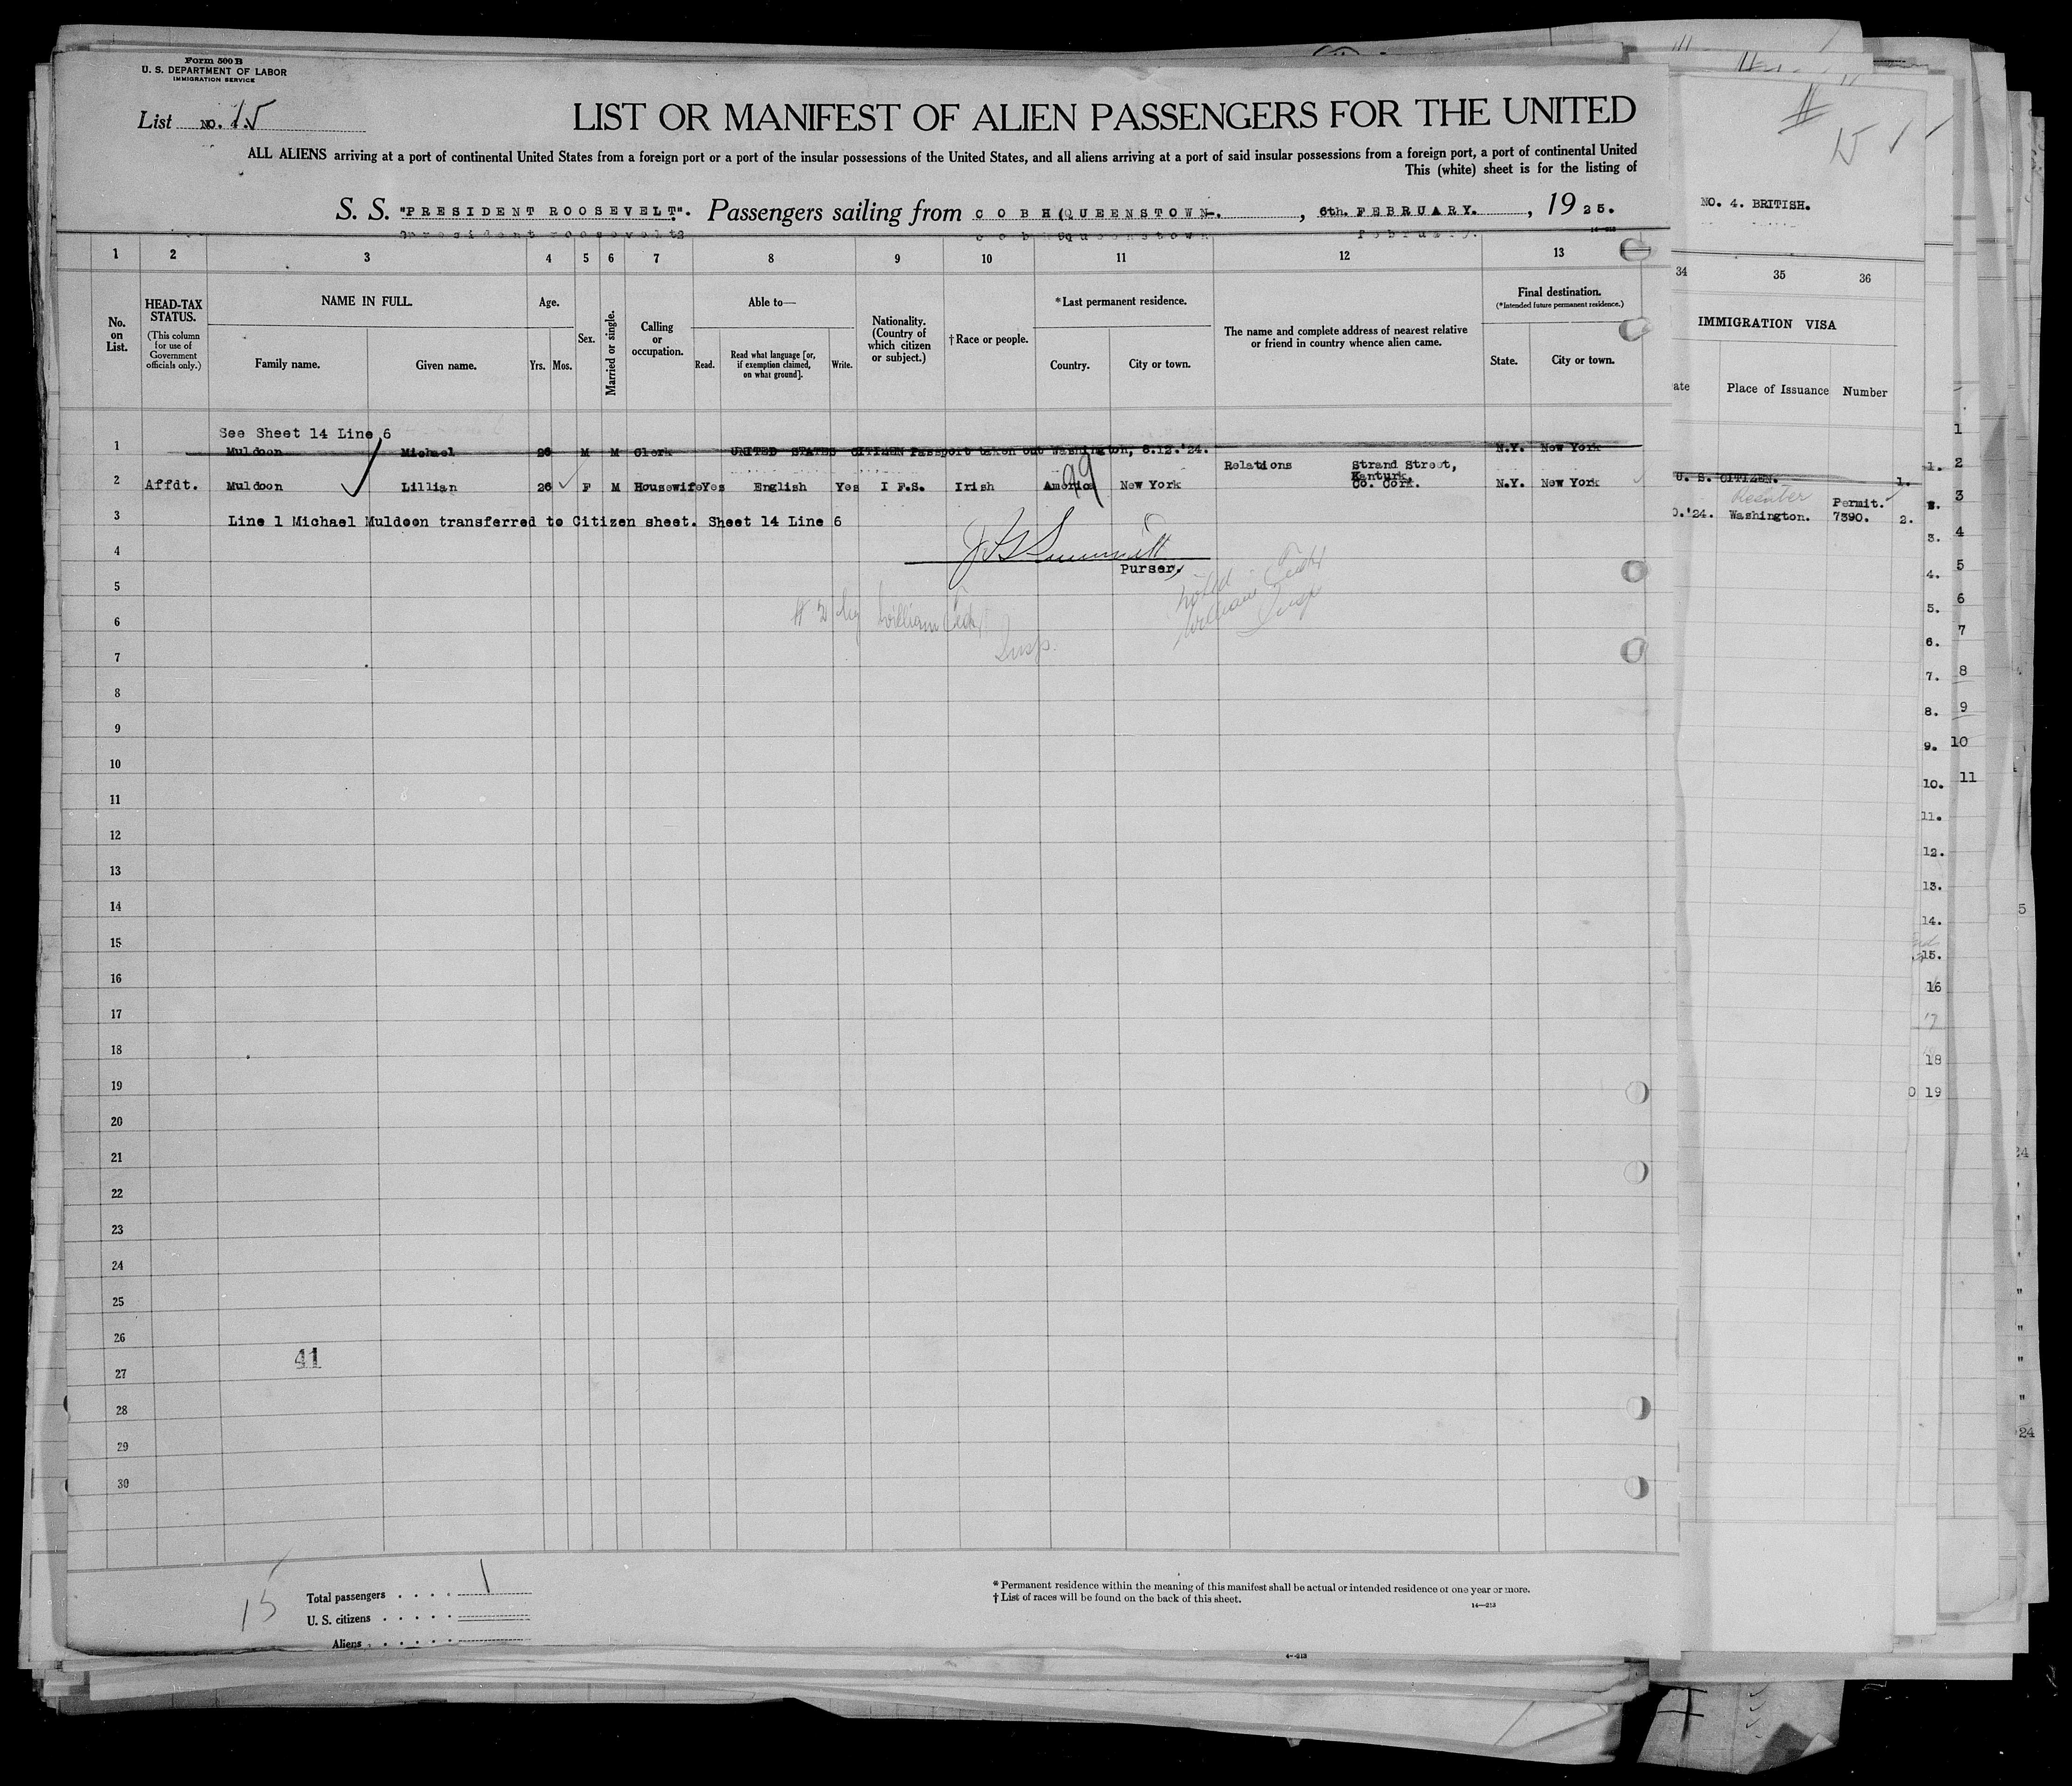 Form 500 B
U. S. DEPARTMENT OF LABOR
IMMIGRATION SERVICE
List NO. 15
LIST OR MANIFEST OF ALIEN PASSENGERS FOR THE UNITED
ALL ALIENS arriving at a port of continental United States from a foreign port or a port of the insular possessions of the United States, and all aliens arriving at a port of said insular possessions from a foreign port, a port of continental United
This (white) sheet is for the listing of
S. S. "PRESIDENT ROOSEVELT". Passengers sailing from COBH(QUEENSTOWN., 6th. FEBRUARY., 1925.
1 2 3 4 5 6 7 8 9 10 11 12 13
No. on List.
HEAD-TAX STATUS.
(This column for use of Government officials only.)
NAME IN FULL.
Family name. Given name.
Age.
Yrs. Mos.
Sex.
Married or single.
Calling or occupation.
Able to—
Read. Read what language [or, if exemption claimed, on what ground]. Write.
Nationality. (Country of which citizen or subject.)
†Race or people.
*Last permanent residence.
Country. City or town.
The name and complete address of nearest relative or friend in country whence alien came.
Final destination.
(*Intended future permanent residence.)
State. City or town.
See Sheet 14 Line 6
1 Muldoon Michael 26 M M Clerk UNITED STATES CITIZEN Passport taken out Washington, 8.12.'24. N.Y. New York
2 Affdt. Muldoon Lillian 26 F M Housewife Yes English Yes I F.S. Irish America New York Relations Strand Street, Kanturk, Co. Cork. N.Y. New York
99
3 Line 1 Michael Muldoon transferred to Citizen sheet. Sheet 14 Line 6
4
Purser,
5
6
7
8
9
10
11
12
13
14
15
16
17
18
19
20
21
22
23
24
25
26
41
27
28
29
30
15
Total passengers 1
U. S. citizens
Aliens
* Permanent residence within the meaning of this manifest shall be actual or intended residence of one year or more.
† List of races will be found on the back of this sheet.
14—213
15
NO. 4. BRITISH.
34 35 36
IMMIGRATION VISA
Place of Issuance Number
U. S. CITIZEN. 1.
Permit.
.'24. Washington. 7390. 2.